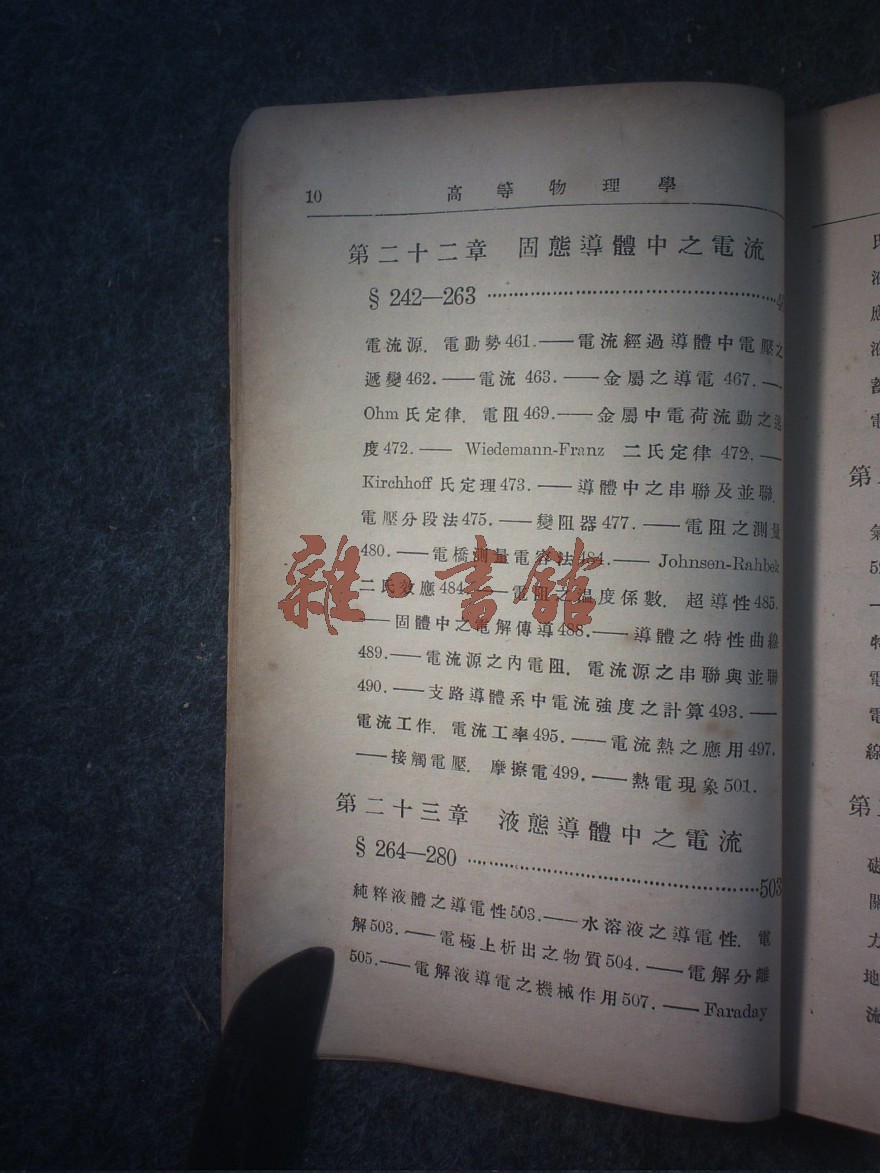 10 高等物理學
第二十二章 固態導體中之電流
§ 242—263 ……………………………4
電流源．電動勢461.——電流經過導體中電壓之
遞變462.——電流 463.——金屬之導電 467.—
Ohm 氏定律．電阻469.——金屬中電荷流動之速
度472.—— Wiedemann-Franz 二氏定律 472.—
Kirchhoff 氏定理473.——導體中之串聯及並聯．
電壓分段法475.——變阻器477.——電阻之測量
480.——電橋測量電容法484.—— Johnsen-Rahbek
二氏效應484.——電阻之溫度係數．超導性485.
——固體中之電解傳導488.——導體之特性曲線
489.——電流源之內電阻．電流源之串聯與並聯
490.——支路導體系中電流強度之計算493.——
電流工作．電流工率495.——電流熱之應用497.
——接觸電壓．摩擦電499.——熱電現象501.
第二十三章 液態導體中之電流
§ 264—280 ……………………………503
純粹液體之導電性503.——水溶液之導電性．電
解503.——電極上析出之物質504.——電解分離
505.——電解液導電之機械作用507.——Faraday
雜·書館
氏
液
應
液
蓄
電
第
氣
52
—
特
電
電
線
第
磁
關
力
地
流